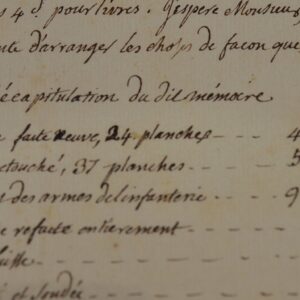 s 4 d. pour livres. J'espere Monsieur
te d'arranger les choses de façon que
écapitulation du dit mémoire
e faite neuve, 24 planches 4
etouché, 37 planches 5
t des armes de l'infanterie 9
e refaite entierement
et soudée